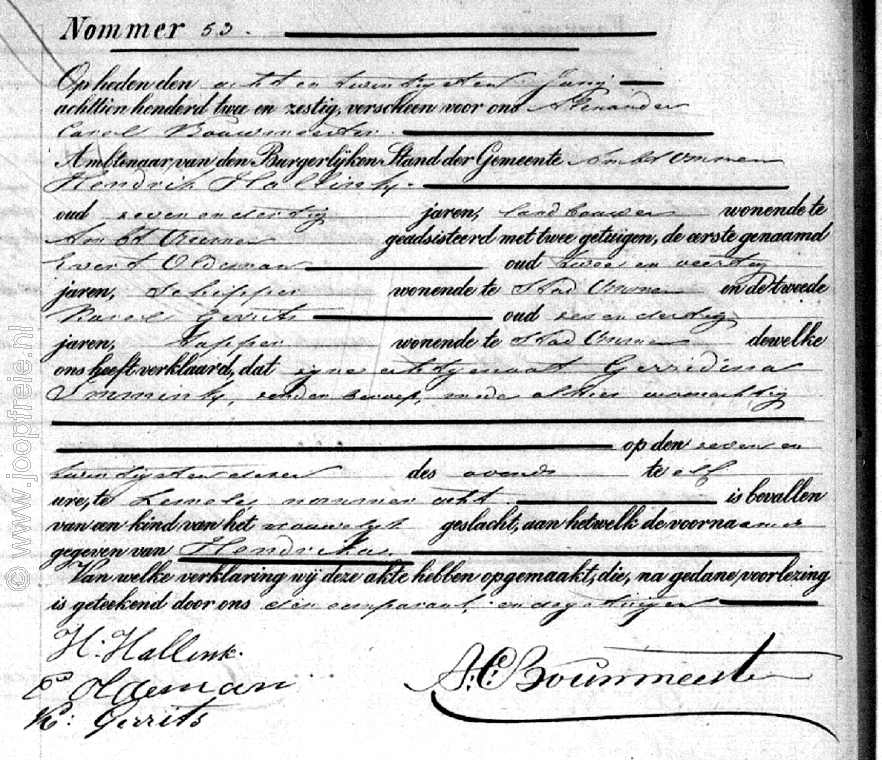 Nommer 53.
Op heden den acht en twintigsten Junij
achttien honderd twee en zestig, verscheen voor ons Alexander
Carel Bouwmeester.
Ambtenaar van den Burgerlijken Stand der Gemeente Ambt Ommen
Hendrik Hallink,
oud zeven en dertig jaren, landbouwer wonende te
Ambt Ommen geadsisteerd met twee getuigen, de eerste genaamd
Evert Oldeman oud twee en veertig
jaren, Schipper wonende te Stad Ommen en de tweede
Karel Gerrits oud zes en dertig
jaren, tapper wonende te Stad Ommen dewelke
ons heeft verklaard, dat zyne echtgenoot Gerridina
Immink, zonder beroep, mede alhier woonachtig
op den zeven en
twintigsten dezer des avonds te elf
ure, te Lemele nommer acht is bevallen
van een kind van het vrouwelyk geslacht, aan hetwelk de voornaamen
gegeven van Hendrika.
Van welke verklaring wij deze akte hebben opgemaakt, die, na gedane voorlezing
is geteekend door ons den comparant en de getuigen
H. Hallink.
Oldeman
K: Gerrits
A:C: Bouwmeester
© www.joopfreie.nl